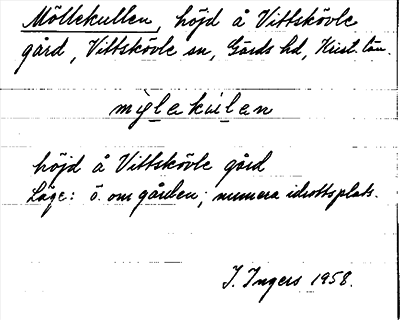 Möllekullen, höjd å Vittskövle
gård, Vittskövle sn, Gärds hd, Krist. län.
mỳlekùlen
höjd å Vittskövle gård
Läge: ö. om gården; numera idrottsplats.
I. Ingers 1958.